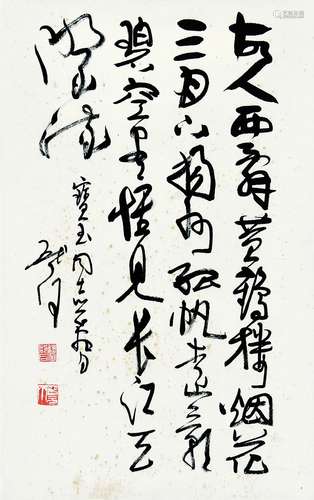 故人西辭黄鶴樓烟花
三月下揚州孤帆遠影
碧空盡惟見長江天
際流
寶玉同志